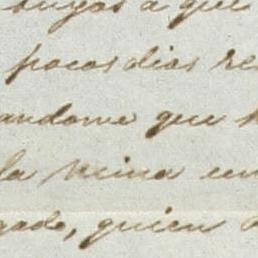 suyos a que
pocos dias re
andome que
la reina en
gado, quien